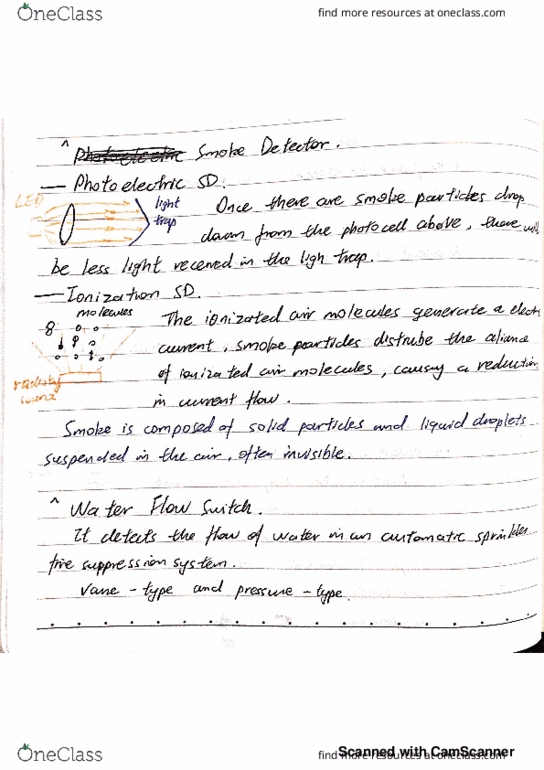 OneClass
find more resources at oneclass.com
^ Photoelectric Smoke Detector.
— Photoelectric SD.
LED
light
trap
Once there are smoke particles drop
down from the photocell above, there will
be less light received in the ligh trap.
— Ionization SD.
molecules
The ionizated air molecules generate a elect
current, smoke particles distrube the
of ionizated air molecules, causing a reduction
in current flow.
source
Smoke is composed of solid particles and liquid droplets
suspended in the air, often invisible.
^ Water Flow Switch.
It detects the flow of water in an automatic sprinkler
fire suppression system.
Vane - type and pressure - type.
OneClass
find more resources at oneclass.com
Scanned with CamScanner